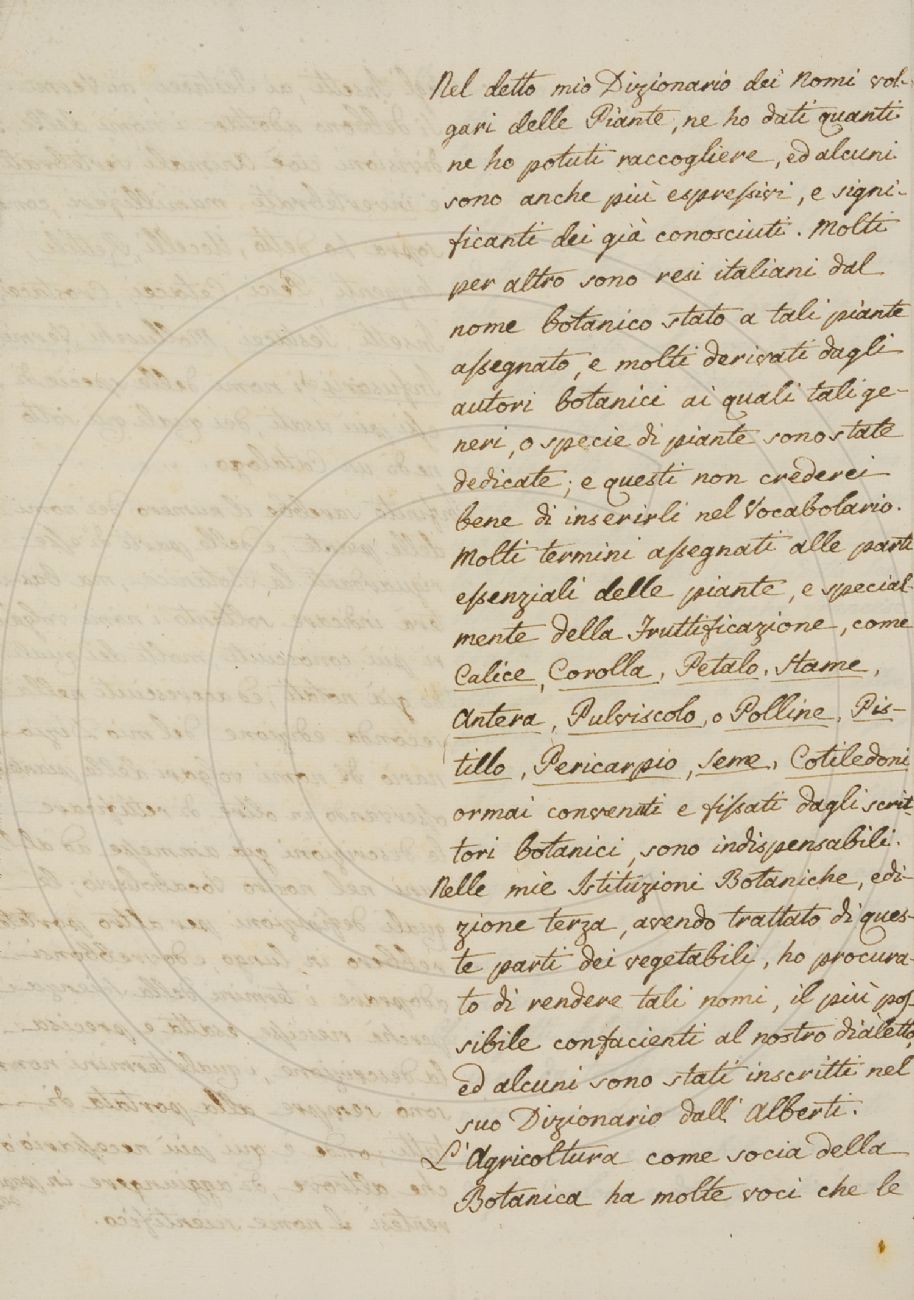 Nel detto mio Dizionario dei Nomi vol-
gari delle Piante, ne ho dati quanti
ne ho potuti raccogliere, ed alcuni
sono anche più espressivi, e signi-
ficanti dei già conosciuti. Molti
per altro sono resi italiani dal
nome botanico stato a tali piante
assegnato, e molti derivati dagli
autori botanici ai quali tali ge-
neri, o specie di piante sono state
dedicate; e questi non crederei
bene di inserirli nel Vocabolario.
Molti termini assegnati alle parti
essenziali delle piante, e special-
mente della Fruttificazione, come
Calice, Corolla, Petalo, Stame,
Antera, Pulviscolo, o Polline, Pis-
tillo, Pericarpio, Seme, Cotiledoni
ormai convenuti e fissati dagli scrit-
tori botanici, sono indispensabili.
Nelle mie Istituzioni Botaniche, edi-
zione terza, avendo trattato di ques-
te parti dei vegetabili, ho procura-
to di rendere tali nomi, il più pos
sibile confacienti al nostro dialetto,
ed alcuni sono stati inscritti nel
suo Dizionario dall' Alberti.
L'Agricoltura come socia della
Botanica ha molte voci che le